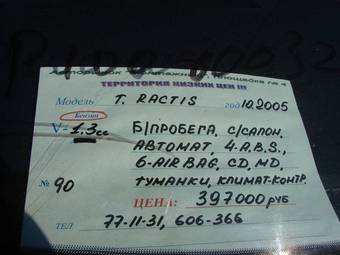 ТЕРРИТОРИЯ НИЗКИХ ЦЕН !!!
Модель T. RACTIS год 10.2005
Бензин
V- 1.3 сс Б/ПРОБЕГА, С/САЛОН,
АВТОМАТ, 4.A.B.S.,
6-AIR BAG, CD, MD,
№ 90 ТУМАНКИ, КЛИМАТ-КОНТР.
ЦЕНА: 397000 РУБ
ТЕЛ: 77-11-31, 606-366